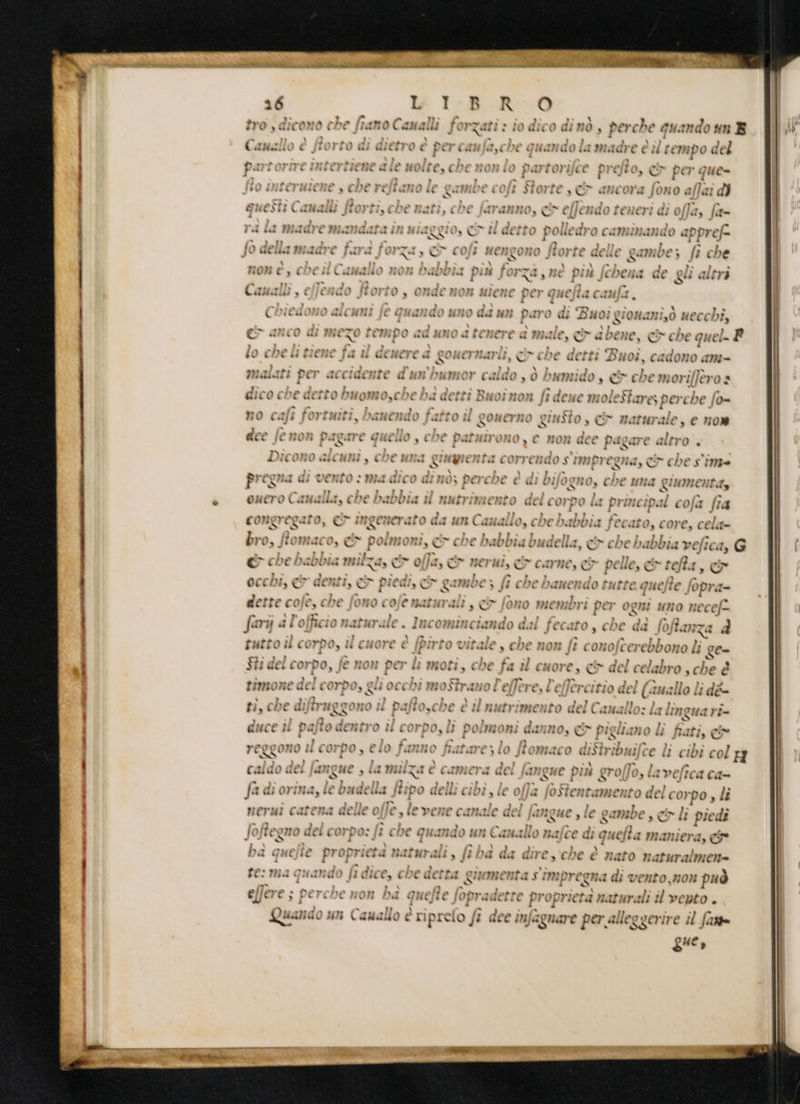 26 L I B R O
tro, dicono che ſiano Caualli forzati: io dico di nò, perche quando un E
Cauallo è ſtorto di dietro è per cauſa, che quando la madre è il tempo del
partorire intertiene ale uolte, che non lo partoriſce preſto, & per que-
ſto interuiene, che reſtano le gambe coſi ſtorte, & ancora ſono aſſai di
queſti Caualli ſtorti, che nati, che ſaranno, & eſſendo teneri di oſſa, ſa-
rà la madre mandata in uiaggio, & il detto polledro caminando appreſ-
ſo della madre farà forza, & coſi uengono ſtorte delle gambe; ſi che
non è, che il Cauallo non habbia più forza, nè più ſchena de gli altri
Caualli, eſſendo ſtorto, onde non uiene per queſta cauſa.
Chiedono alcuni ſe quando uno dà un paro di Buoi giouani, ò uecchi,
& anco di mezo tempo ad uno à tenere à male, & à bene, & che quel- F
lo che li tiene fa il deuere à gouernarli, & che detti Buoi, cadono am-
malati per accidente d'un'humor caldo, ò humido, & che moriſſero:
dico che detto huomo, che hà detti Buoi non ſi deue moleſtare; perche ſo-
no caſi fortuiti, hauendo fatto il gouerno giuſto, & naturale, e non
dee ſe non pagare quello, che patuirono, e non dee pagare altro.
Dicono alcuni, che una giumenta correndo s'impregna, & che s'im-
pregna di vento: ma dico di nò; perche è di biſogno, che una giumenta,
ouero Caualla, che habbia il nutrimento del corpo la principal coſa ſia
congregato, & ingenerato da un Cauallo, che habbia fecato, core, cela-
bro, ſtomaco, & polmoni, & che habbia budella, & che habbia veſica, G
& che habbia milza, & oſſa, & nerui, & carne, & pelle, & teſta, &
occhi, & denti, & piedi, & gambe; ſi che hauendo tutte queſte ſopra-
dette coſe, che ſono coſe naturali, & ſono membri per ogni uno neceſ-
ſarij à l'officio naturale. Incominciando dal fecato, che dà ſoſtanza à
tutto il corpo, il cuore è ſpirto vitale, che non ſi conoſcerebbono li ge-
ſti del corpo, ſe non per li moti, che fa il cuore, & del celabro, che è
timone del corpo, gli occhi moſtrano l'eſſere, l'eſſercitio del Cauallo li dé-
ti, che diſtruggono il paſto, che è il nutrimento del Cauallo: la lingua ri-
duce il paſto dentro il corpo, li polmoni danno, & pigliano li fiati, &
reggono il corpo, e lo fanno fiatare; lo ſtomaco diſtribuiſce li cibi col H
caldo del ſangue, la milza è camera del ſangue più groſſo, la veſica ca-
ſa di orina, le budella ſtipo delli cibi, le oſſa ſoſtentamento del corpo, li
nerui catena delle oſſe, le vene canale del ſangue, le gambe, & li piedi
ſoſtegno del corpo: ſi che quando un Cauallo naſce di queſta maniera, &
hà queſte proprietà naturali, ſi hà da dire, che è nato naturalmen-
te: ma quando ſi dice, che detta giumenta s'impregna di vento, non può
eſſere; perche non hà queſte ſopradette proprietà naturali il vento.
Quando un Cauallo è ripreſo ſi dee inſagnare per alleggerire il ſan-
gue,